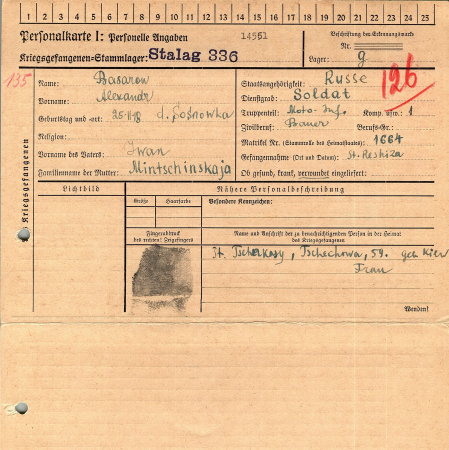 1 2 3 4 5 6 7 8 9 10 11 12 13 14 15 16 17 18 19 20 21 22 23 24 25
Personalkarte I: Personelle Angaben
14551
Beschriftung der Erkennungsmarke
Nr.
Kriegsgefangenen-Stammlager: Stalag 336
Lager: g
135
126
Kriegsgefangenen
Name: Basarow
Vorname: Alexandr
Geburtstag und -ort: 25.11.18 d. Sosnowka
Religion:
Vorname des Vaters: Iwan
Familienname der Mutter: Mintschinskaja
Staatsangehörigkeit: Russe
Dienstgrad: Soldat
Truppenteil: Moto-Inf. Komp. usw.: 1
Zivilberuf: Bauer Berufs-Gr.:
Matrikel Nr. (Stammrolle des Heimatstaates): 1664
Gefangennahme (Ort und Datum): St. Reshiza
Ob gesund, krank, verwundet eingeliefert:
Lichtbild
Nähere Personalbeschreibung
Größe
Haarfarbe
Besondere Kennzeichen:
Fingerabdruck
des rechten! Zeigefingers
Name und Anschrift der zu benachrichtigenden Person in der Heimat
des Kriegsgefangenen
St. Tscherkasy, Tschechowa, 59. geb Kiew
Frau
Wenden!